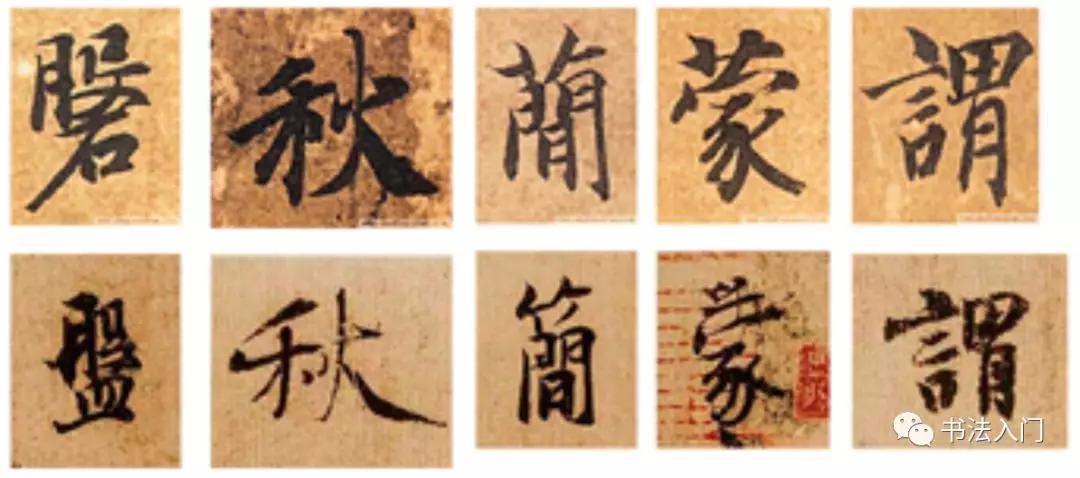 磐 秋 蕳 蒙 謂
盤 秋 簡 蒙 謂
书法入门